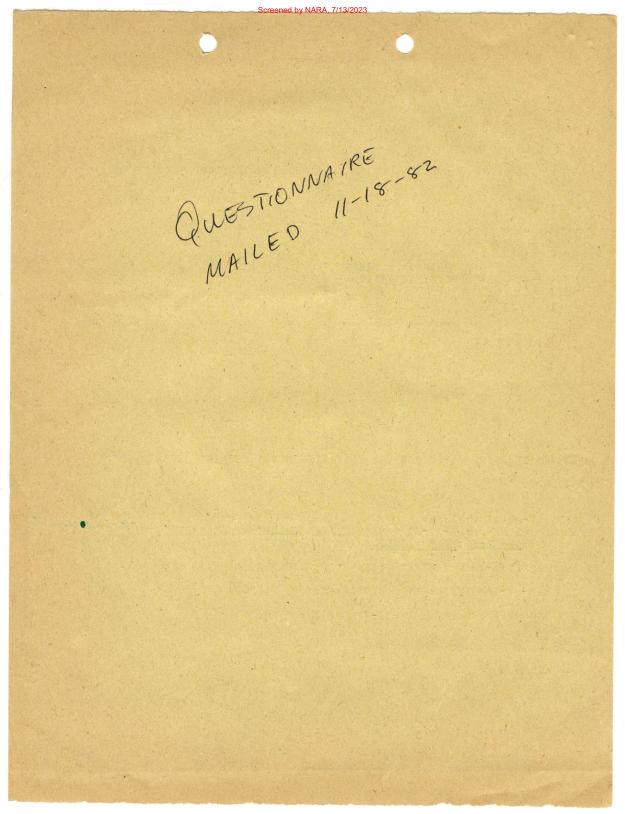 Screened by NARA, 7/13/2023
QUESTIONNAIRE
MAILED 11-18-82